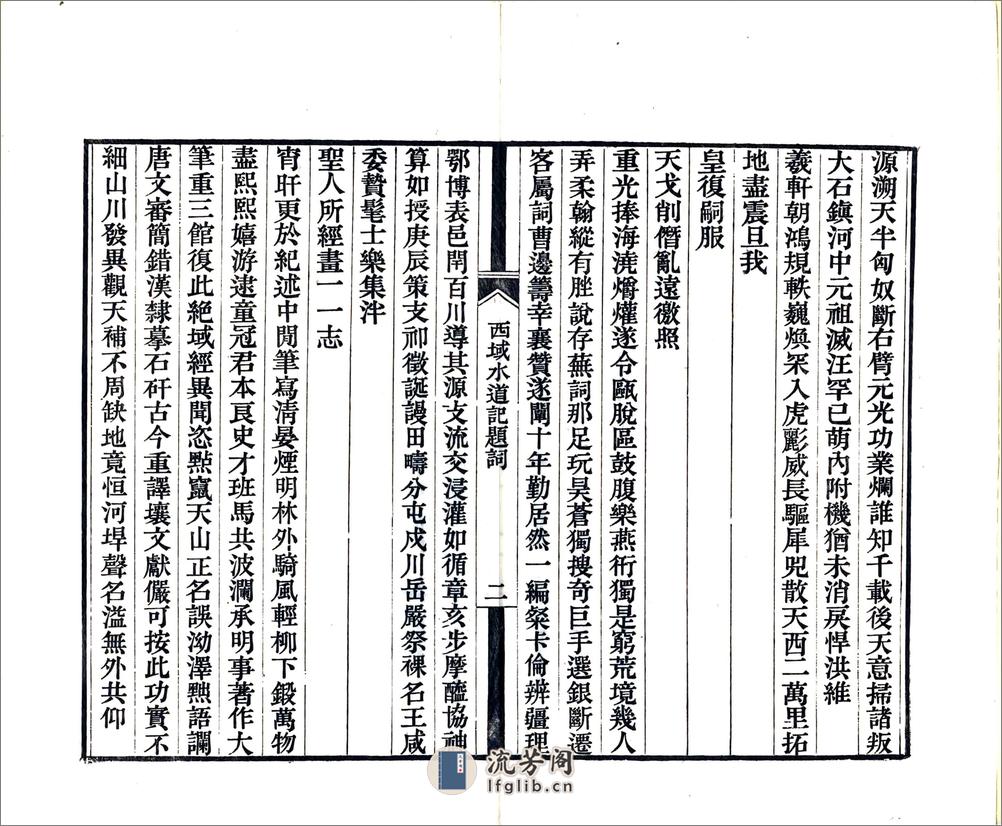 源溯天半匈奴斷右臂元光功業爛誰知千載後天意掃諸叛
大石鎮河中元祖滅汪罕已萌內附機猶未消戾悍洪維
羲軒朝鴻規軼巍煥罙入虎彲威長驅犀兕散天西二萬里拓
地盡震旦我
皇復嗣服
天戈削僭亂遠徼照
重光捧海澆爝爟遂令甌脫區鼓腹樂燕衎獨是窮荒境幾人
弄柔翰縱有脞說存蕪詞那足玩昊蒼獨搜奇巨手選銀斷遷
客屬詞曹邊籌幸襄贊遂闡十年勤居然一編粲卡倫辨疆理
西域水道記題詞
二
鄂博表邑閈百川導其源支流交浸灌如循章亥步摩醯協神
算如授庚辰策支祁徵誕謾田疇分屯戍川岳嚴祭祼名王咸
委贄髦士樂集泮
聖人所經畫一一志
宵旰更於紀述中閒筆寫清晏煙明林外騎風輕柳下鍛萬物
盡熙熙嬉游逮童冠君本良史才班馬共波瀾承明事著作大
筆重三館復此絕域經異聞恣㸃竄天山正名誤泑澤㸃語讕
唐文審簡錯漢隸摹石矸古今重譯壤文獻儼可按此功實不
細山川發異觀天補不周缺地竟恒河垾聲名溢無外共仰
流芳阁
lfglib.cn